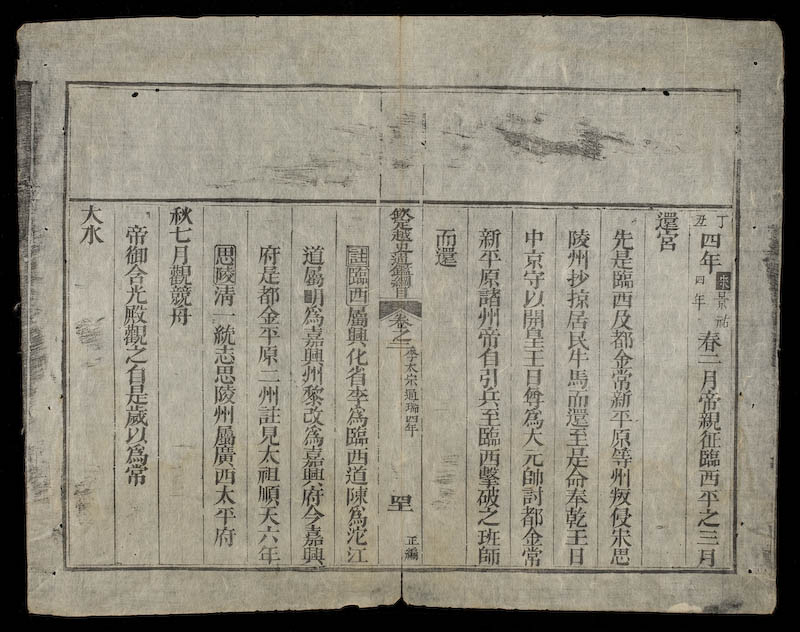 丁丑四年宋景祐四年春二月帝親征臨西平之三月
還宮
先是臨西及都金常新平原等州叛侵宋思
陵州抄掠居民牛馬而還至是命奉乾王日
中京守以開皇王日尊爲大元帥討都金常
新平原諸州帝自引兵至臨西擊破之班師
而還
欽定越史通鑑綱目 卷之二 李太宗通瑞四年 正編
註臨西屬興化省李爲臨西道陳爲沱江
道屬明爲嘉興州黎改爲嘉興府今嘉興
府是都金平原二州註見太祖順天六年
思陵清一統志思陵州屬廣西太平府
秋七月觀競舟
帝御含光殿觀之自是歲以爲常
大水